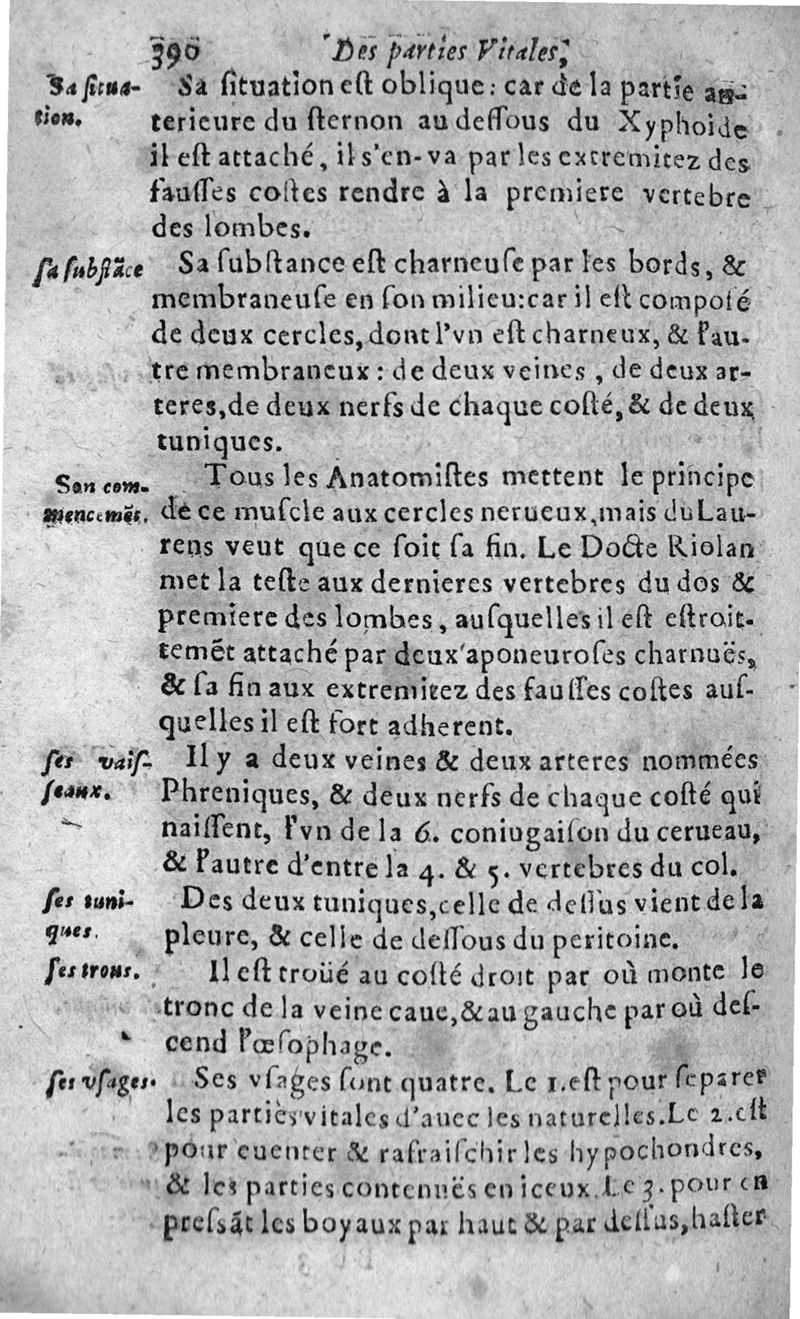 390 Des parties Vitales,
Sa situa-
tion.
Sa ſituation eſt oblique: car de la partie an-
terieure du ſternon au deſſous du Xyphoide
il eſt attaché, il s'en-va par les extremitez des
fauſſes coſtes rendre à la premiere vertebre
des lombes.
ſa ſubſtãce
Sa ſubſtance eſt charneuſe par les bords, &
membraneuſe en ſon milieu:car il eſt compoſé
de deux cercles, dont l'vn eſt charneux, & l'au-
tre membraneux : de deux veines , de deux ar-
teres,de deux nerfs de chaque coſté, & de deux
tuniques.
Son com-
mencemẽt.
Tous les Anatomiſtes mettent le principe
de ce muſcle aux cercles nerueux,mais du Lau-
rens veut que ce ſoit ſa fin. Le Docte Riolan
met la teſte aux dernieres vertebres du dos &
premiere des lombes, auſquelles il eſt eſtroit-
temẽt attaché par deux aponeuroſes charnuës,
& ſa fin aux extremitez des fauſſes coſtes auſ-
quelles il eſt fort adherent.
ſes vaiſ-
ſeaux.
Il y a deux veines & deux arteres nommées
Phreniques, & deux nerfs de chaque coſté qui
naiſſent, l'vn de la 6. coniugaiſon du cerueau,
& l'autre d'entre la 4. & 5. vertebres du col.
ſes tuni-
ques.
Des deux tuniques,celle de deſſus vient de la
pleure, & celle de deſſous du peritoine.
ſes trous.
Il eſt troüé au coſté droit par où monte le
tronc de la veine caue,& au gauche par où deſ-
cend l'œſophage.
ſes vſages.
Ses vſages ſont quatre. Le 1.eſt pour ſeparer
les parties vitales d'auec les naturelles.Le 2.eſt
pour euenter & rafraiſchir les hypochondres,
& les parties contenuës en iceux. Le 3. pour en
preſsãt les boyaux par haut & par deſſus,haſter